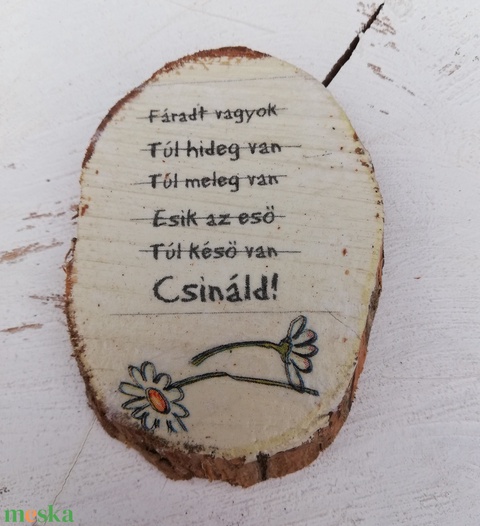 Fáradt vagyok
Túl hideg van
Túl meleg van
Esik az eső
Túl késő van
Csináld!
meska